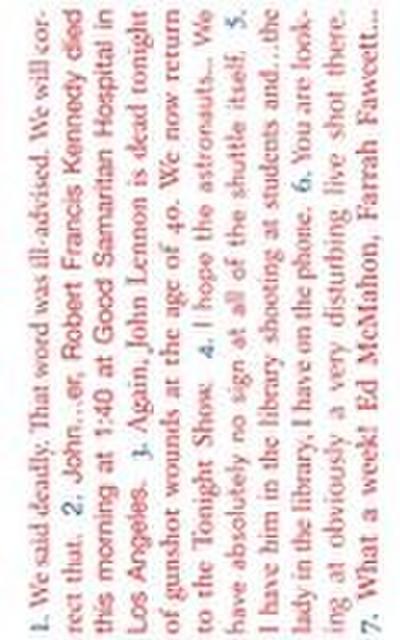 1. We said deadly. That word was ill-advised. We will cor-
rect that. 2. John...er, Robert Francis Kennedy died
this morning at 1:40 at Good Samaritan Hospital in
Los Angeles. 3. Again, John Lennon is dead tonight
of gunshot wounds at the age of 40. We now return
to the Tonight Show. 4. I hope the astronauts... We
have absolutely no sign at all of the shuttle itself. 5.
I have him in the library shooting at students and...the
lady in the library, I have on the phone. 6. You are look-
ing at obviously a very disturbing live shot there.
7. What a week! Ed McMahon, Farrah Fawcett...